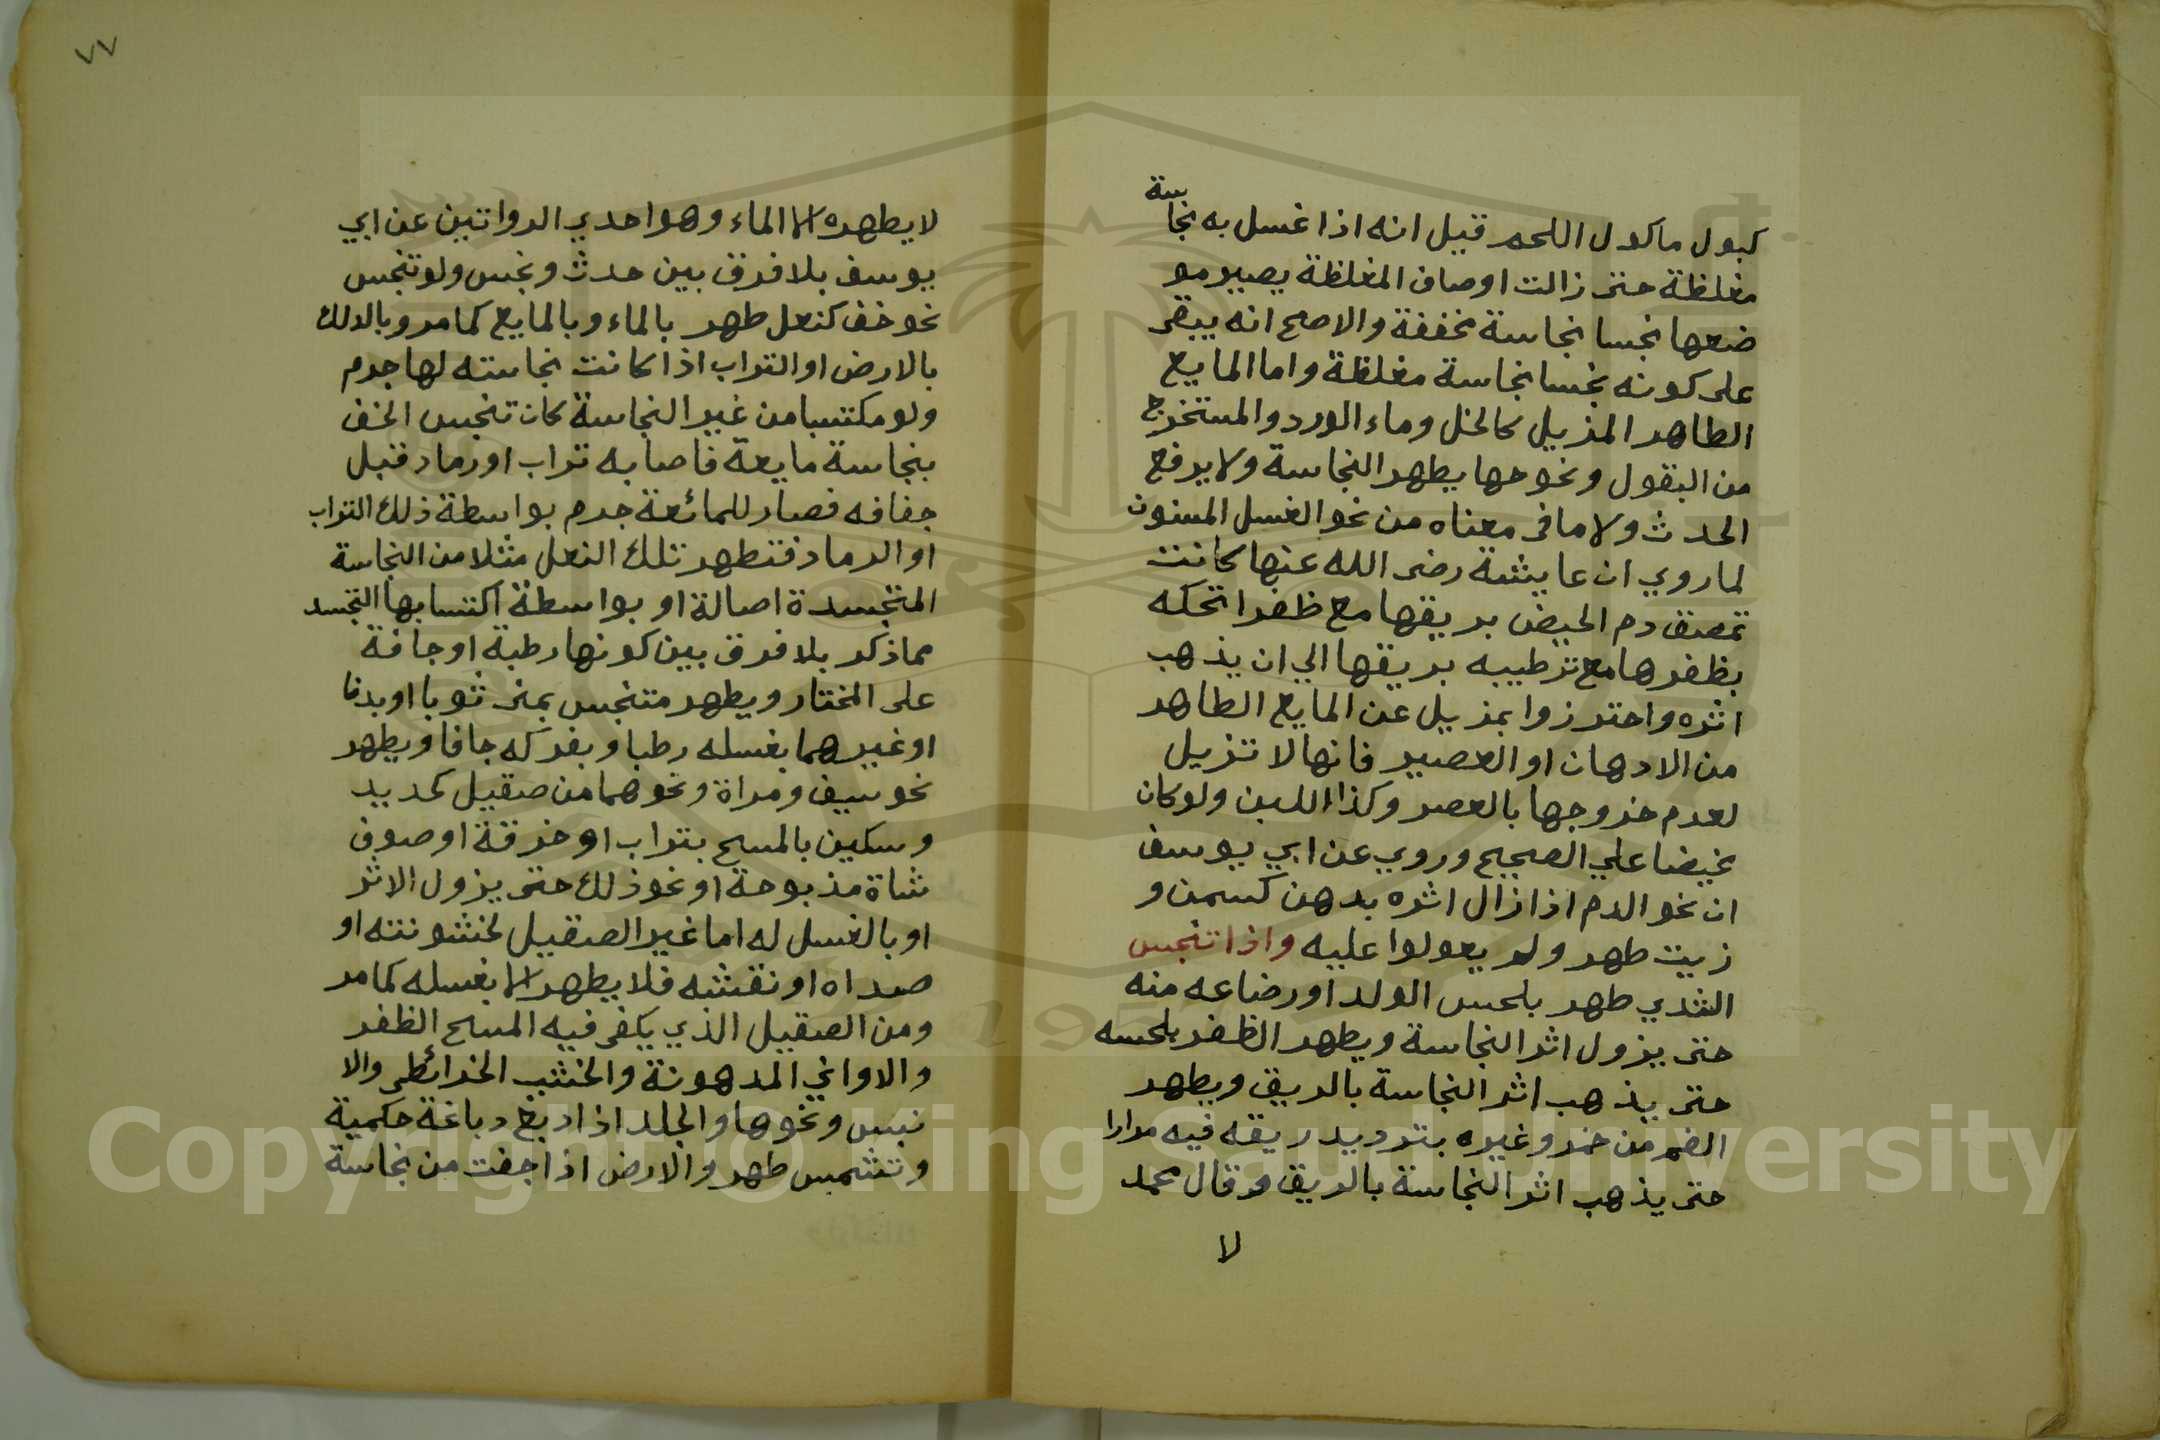 كبول ماكول اللحم قيل انه اذا غسل به نجاسة
مغلظة حتى زالت اوصاف المغلظة يصير مو
ضعها نجسا نجاسة مخففة والاصح انه يبقى
على كونه نجسا نجاسة مغلظة واما المايع
الطاهر المزيل كالخل وماء الورد والمستخرج
من البقول ونحوها يطهر النجاسة ولا يرفع
الحدث ولا ما فى معناه من نحو الغسل المسنون
لما روي ان عايشة رضى الله عنها كانت
تمصق دم الحيض بريقها مع ظفرا تحكه
بظفرها مع ترطيبه بريقها الي ان يذهب
اثره واحترزوا بمزيل عن المايع الطاهر
من الادهان او العصير فانها لا تزيل
لعدم خروجها بالعصر وكذا اللبن ولو كان
مخيضا علي الصحيح وروي عن ابي يوسف
ان نحو الدم اذا زال اثره بدهن كسمن و
زيت طهر ولم يعولوا عليه واذا تنجس
الثدي طهر بلحس الولد او رضاعه منه
حتى يزول اثر النجاسة ويطهر الظفر بلحسه
حتى يذهب اثر النجاسة بالريق ويطهر
الفم من خمر وغيره بترديد ريقه فيه مرارا
حتى يذهب اثر النجاسة بالريق وقال محمد
لا
٧٧
لا يطهره الا الماء وهو احدي الرواتين عن ابي
يوسف بلا فرق بين حدث ونجس ولو تنجس
نحو خف كنعل طهر بالماء وبالمايع كما مر وبالدلك
بالارض او التراب اذا كانت نجاسته لها جرم
ولو مكتسبا من غير النجاسة كان تنجس الخف
بنجاسة مايعة فاصابه تراب او رماد قبل
جفافه فصار للمائعة جرم بواسطة ذلك التراب
او الرماد فتطهر تلك النعل مثلا من النجاسة
المتجسدة اصالة او بواسطة اكتسابها التجسد
مما ذكر بلا فرق بين كونها رطبة او جافة
على المختار ويطهر متنجس بمنى ثوبا او بدنا
او غيرهما بغسله رطبا وبفركه جافا ويطهر
نحو سيف ومراة ونحوهما من صقيل كحديد
وسكين بالمسح بتراب او خرقة او صوف
شاة مذبوحة او نحو ذلك حتى يزول الاثر
او بالغسل له اما غير الصقيل لخشونته او
صداه او نقشه فلا يطهر الا بغسله كما مر
ومن الصقيل الذي يكفى فيه المسح الظفر
والاواني المدهونة والخشب الخرائطى والا
نبس ونحوها والجلد اذا دبغ دباغة حكمية
وتشمس طهر والارض اذا جفت من نجاسة
1957
Copyright © King Saud University